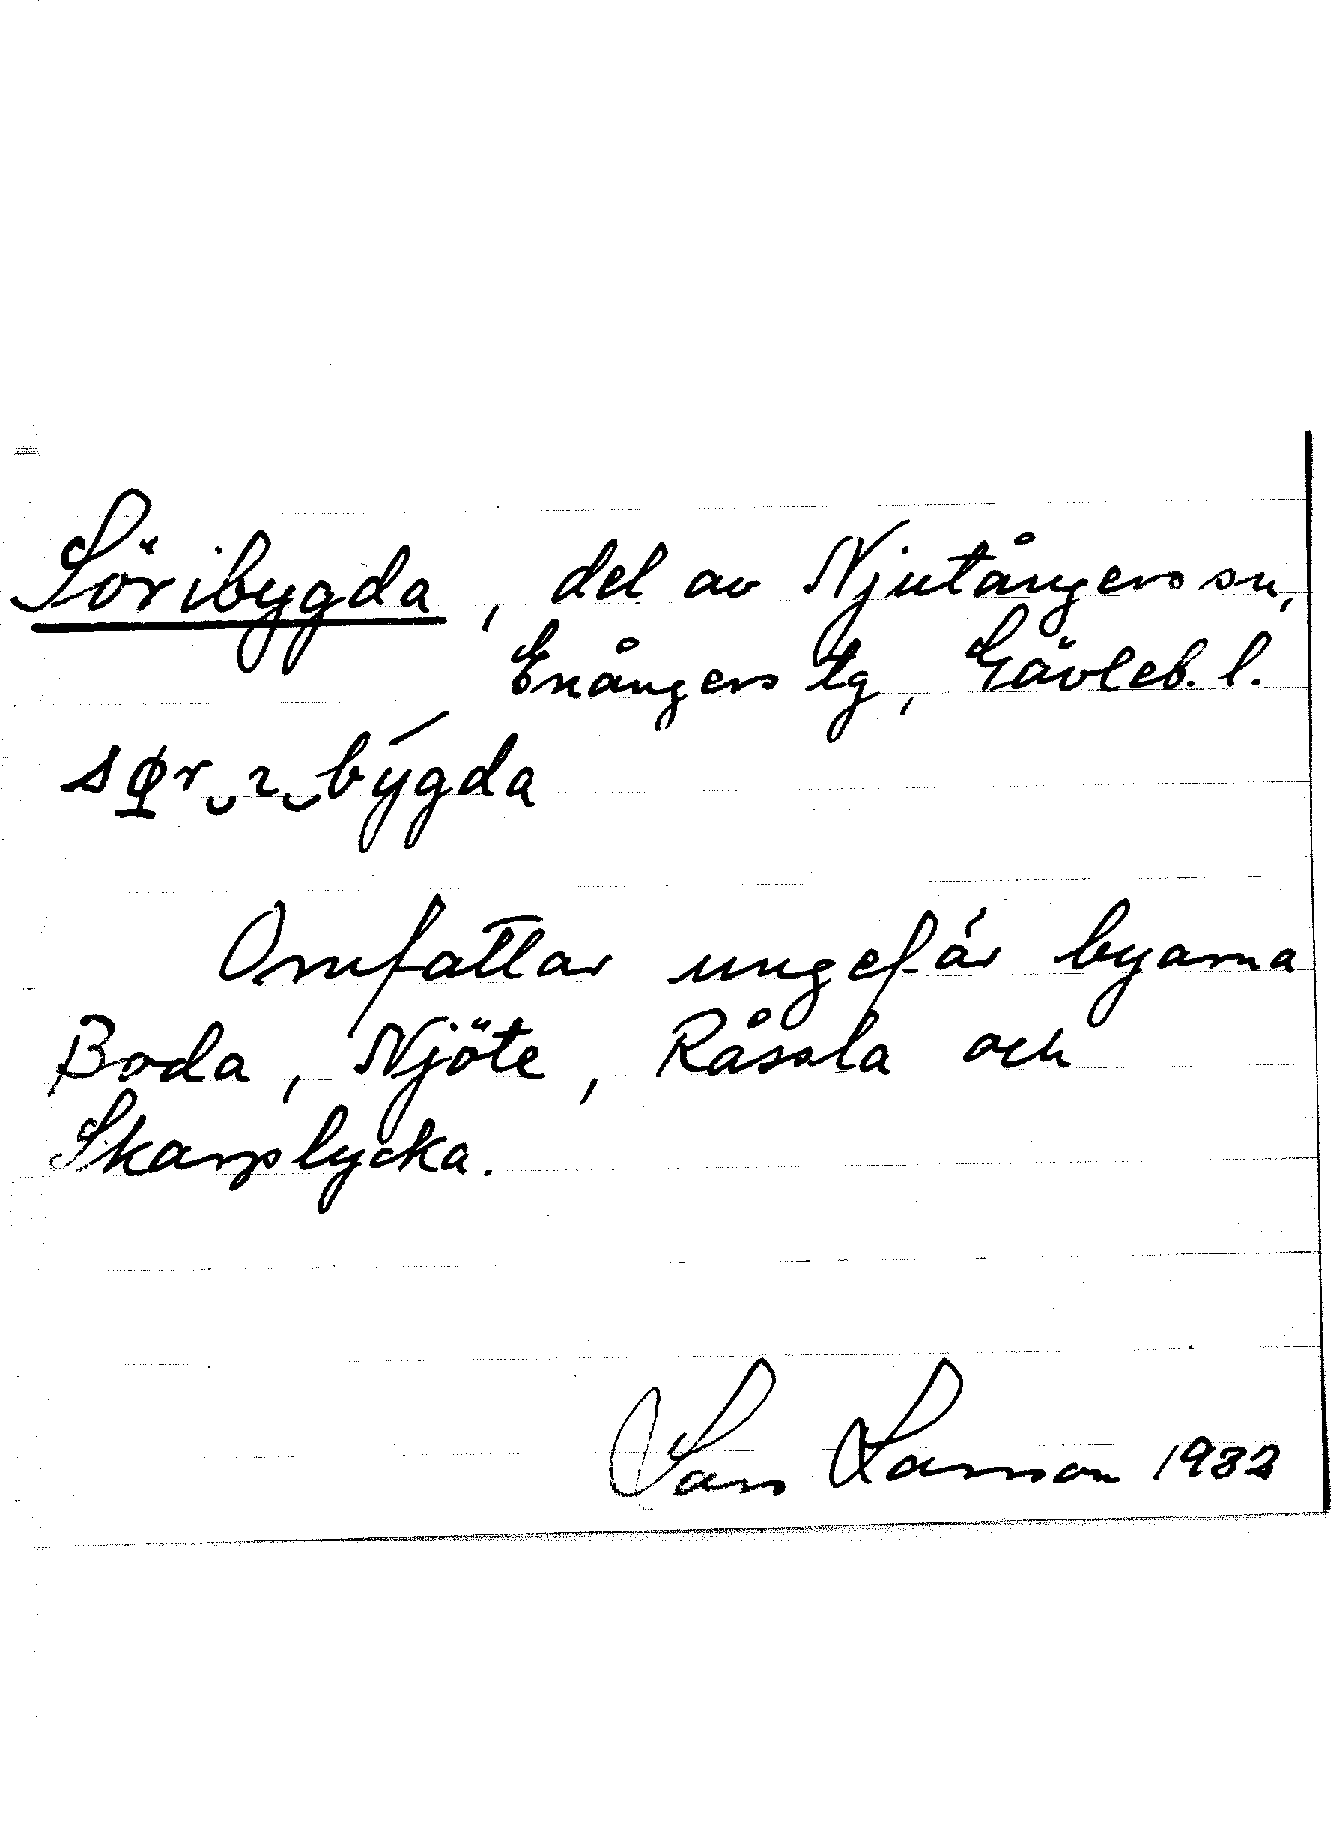 Söribygda, del av Njutångers sn,
Enångers tg, Gävleb. l.
sø̲r‿ɿ‿býgda
Omfattar ungefär byarna
Boda, Njöte, Råssla och
Skarplycka.
Lars Larsson 1932